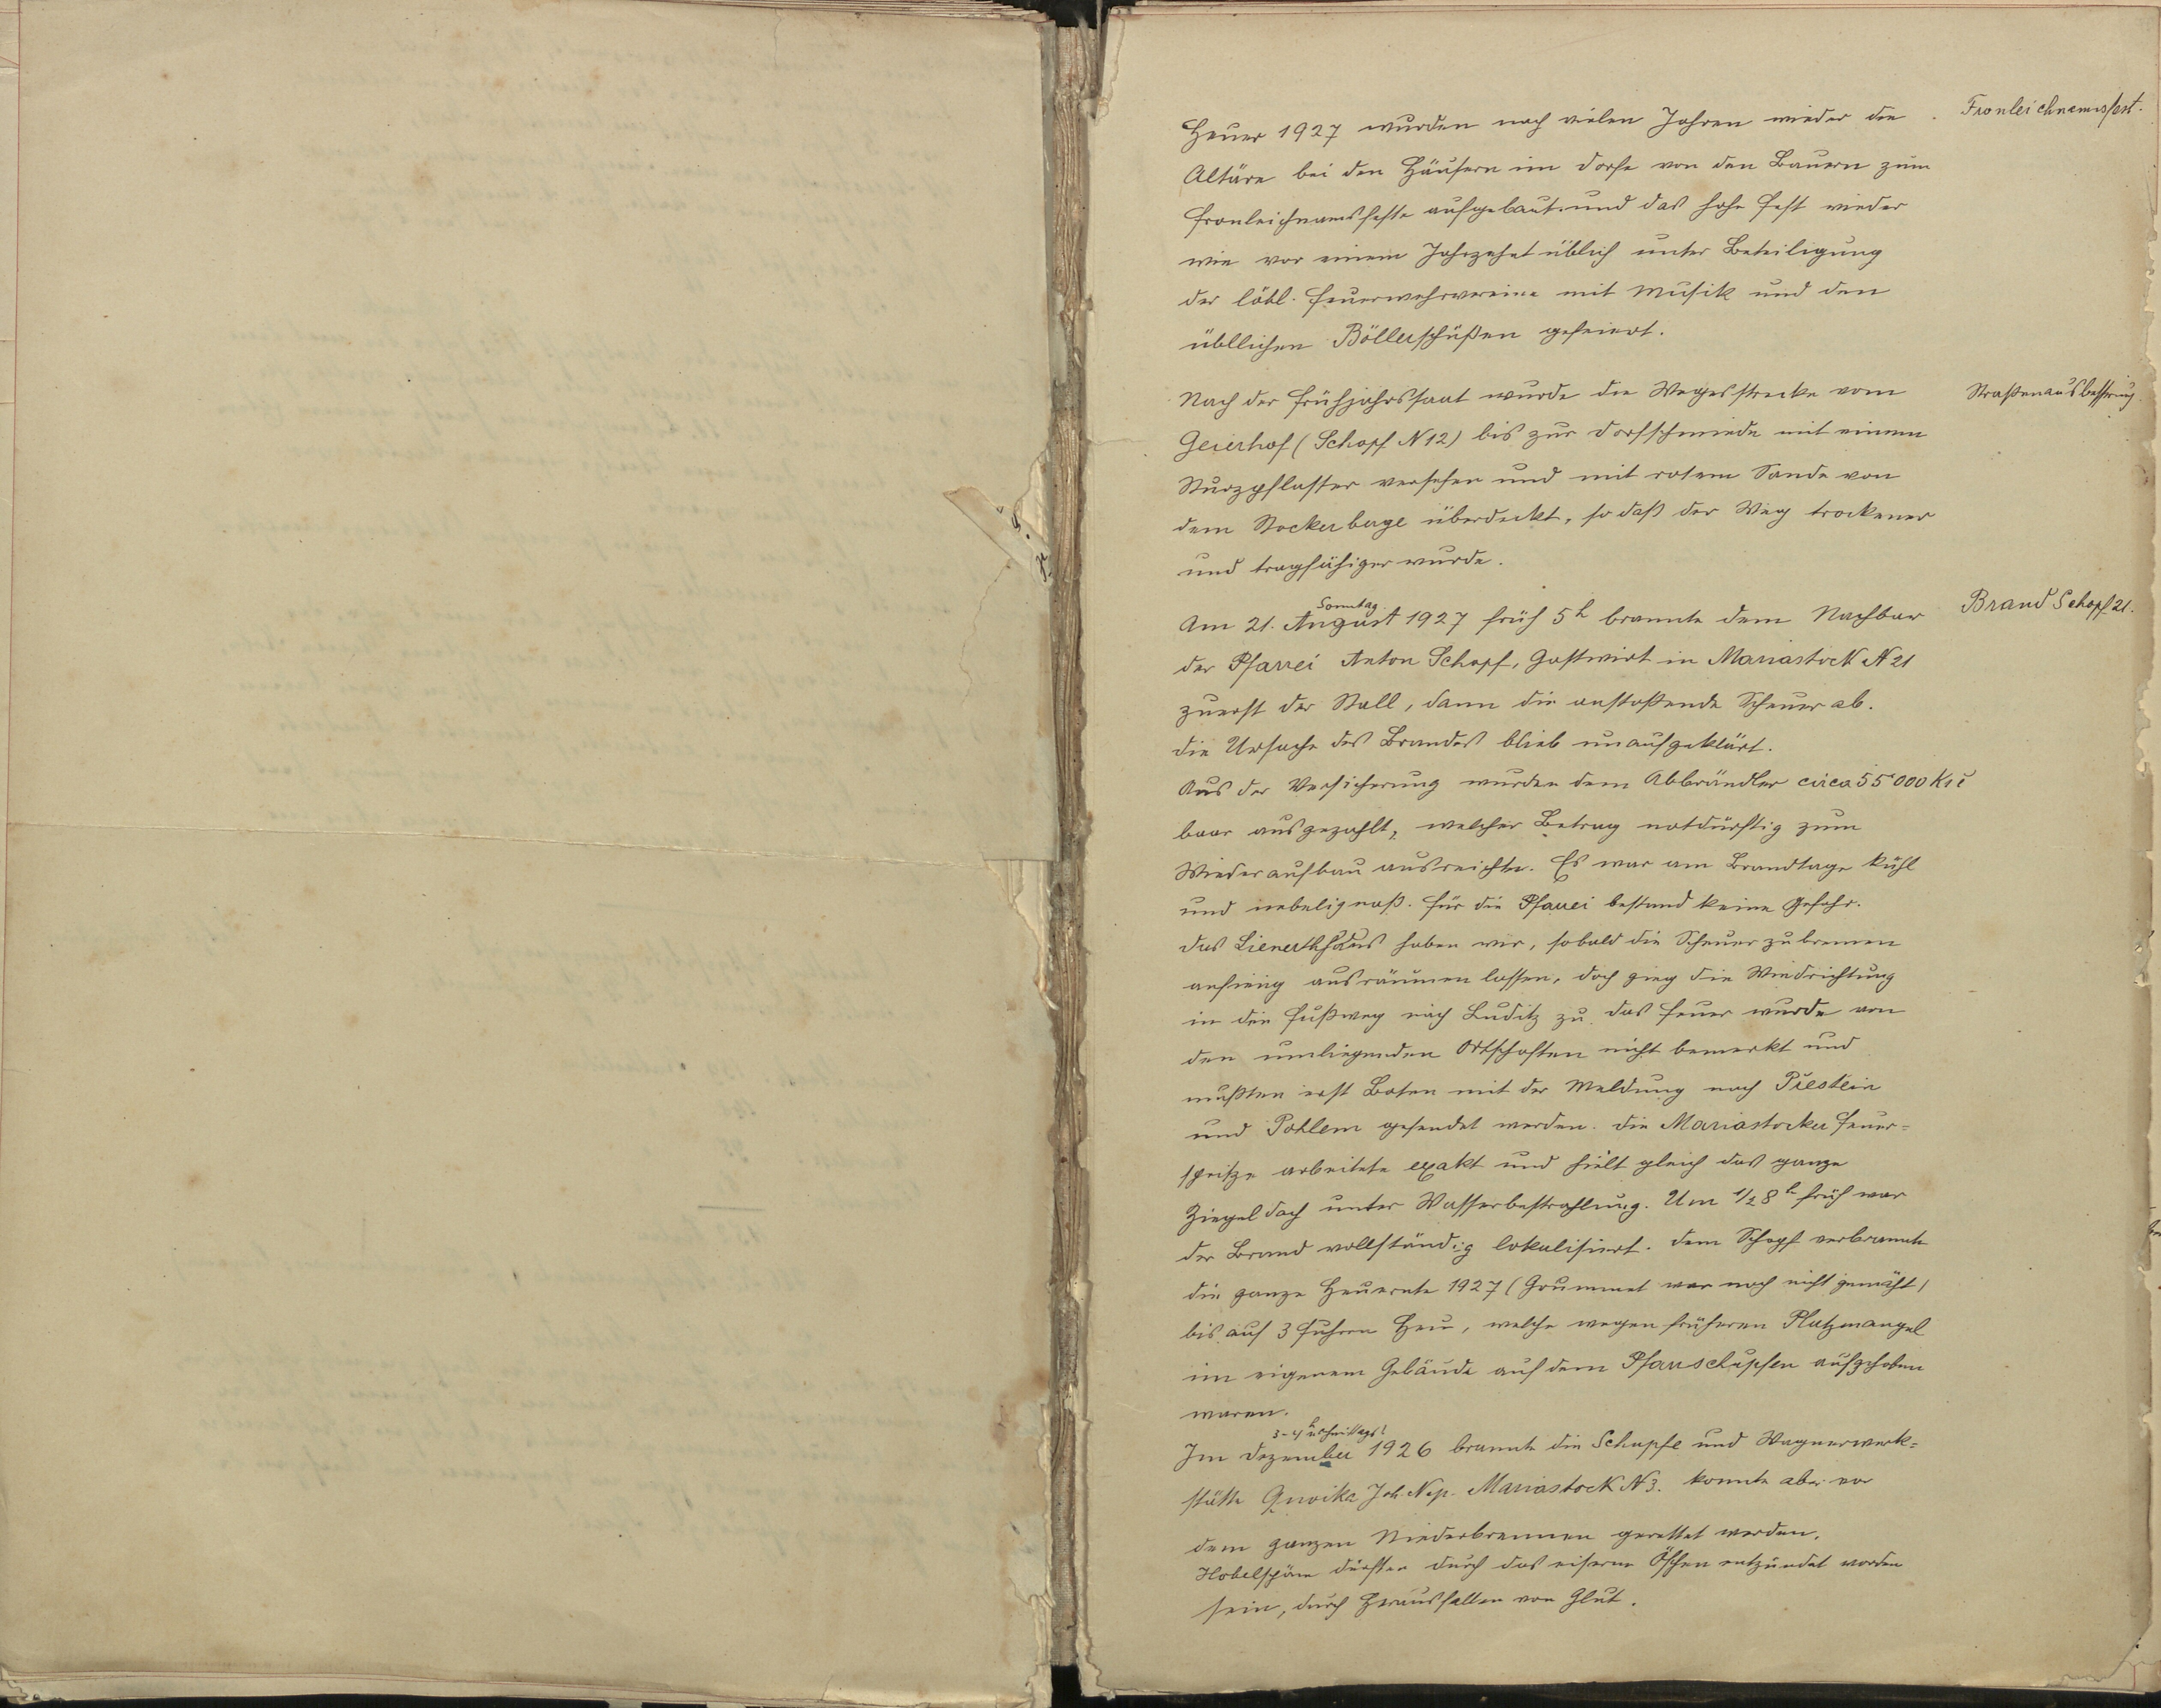 Fronleichnamsfest.
Heuer 1927 wurden nach vielen Jahren wieder die
Altäre bei den Häusern im Dorfe von den Bauern zum
Fronleichnamsfeste aufgebaut und das hohe Fest wieder
wie vor einem Jahrzehnt üblich unter Beteiligung
der löbl. Feuerwehrvereine mit Musik und den
übllichen Böllerschüßen gefeiert.
Straßenausbesserung
Nach der Frühjahrssaat wurde die Wegesstrecke vom
Geierhof (Schopf N 12) bis zur Dorfschmiede mit einem
Sturzpflaster versehen und mit rotem Sande von
dem Stockerberge überdeckt, so daß der Weg trockener
und tragfähiger wurde.
Brand Schopf 21.
Sonntag
Am 21. August 1927 früh 5h brannte dem Nachbar
der Pfarrei Anton Schopf, Gastwirt in Mariastock N 21
zuerst der Stall, dann die anstoßende Scheuer ab.
Die Ursache des Brandes blieb unaufgeklärt.
Aus der Versicherung wurden dem Abbrändler circa 55000 Kč
baar ausgezahlt, welcher Betrag notdürftig zum
Wiederaufbau ausreichte. Es war am Brandtage kühl
und nebelignaß. Für die Pfarrei bestand keine Gefahr.
Das Lienerthhaus haben wir, sobald die Scheuer zu brennen
anfieng ausräumen lassen, doch gieng die Windrichtung
in den Fußweg nach Luditz zu. Das Feuer wurde von
den umliegenden Ortschaften nicht bemerkt und
mußten erst Boten mit der Meldung nach Přestein
und Pohlem gesendet werden. Die Mariastocker Feuer-
spritze arbeitete exakt und hielt gleich das ganze
Ziegeldach unter Wasserbestrahlung. Um 1/2 8h früh war
der Brand vollständig lokalisiert. Dem Schopf verbrannte
die ganze Heuernte 1927 (Grummet war noch nicht gemäht)
bis auf 3 Fuhren Heu, welche wegen früheren Platzmangel
im eigenem Gebäude auf dem Pfarrschupfen aufgehoben
waren.
3-4h nachmittags
Im Dezember 1926 brannte die Schupfe und Wagnerwerk-
stätte Joh. Nep. Mariastock N 3. konnte aber vor
dem ganzen Niederbrennen gerettet werden.
Hobelspäne dürften durch das eiserne Öfchen entzündet worden
sein, durch Herausfallen von Glut.